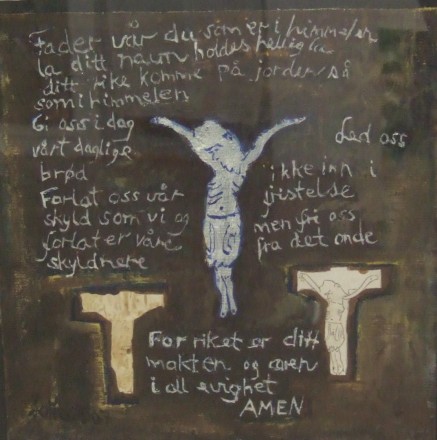 Fader vår du som er i himmelen
la ditt navn holdes hellig la
ditt rike komme på jorden så
som i himmelen
Gi oss i dag
vårt daglige
brød
Forlat oss vår
skyld som vi og
forlater våre
skyldnere
Led oss
ikke inn i
fristelse
men fri oss
fra det onde
For riket er ditt
makten og æren
i all evighet
AMEN